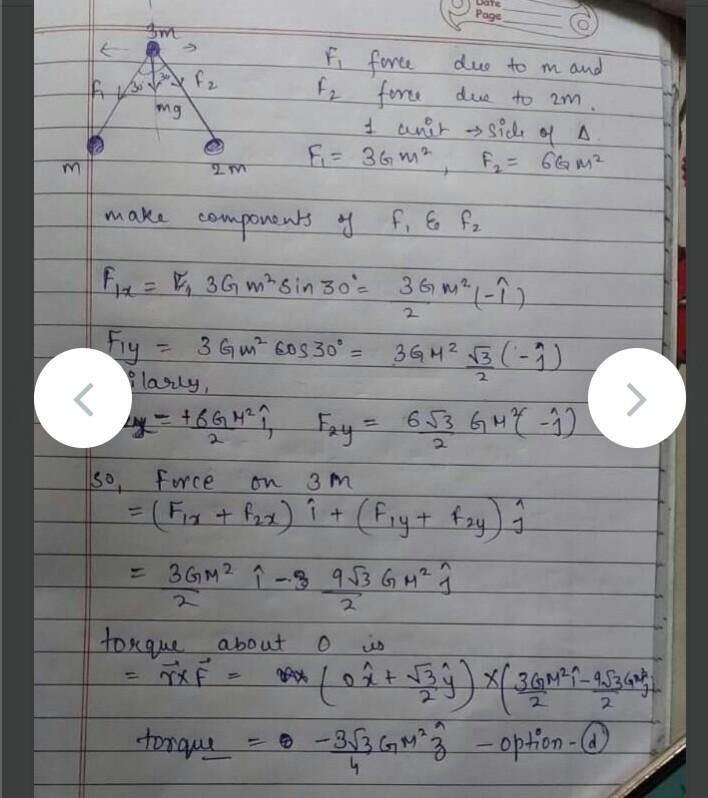 Date
Page
3m
F₁ 30° 30° F₂
mg
m 2m
F₁ force due to m and
F₂ force due to 2m.
1 unit → side of Δ
F₁ = 3Gm², F₂ = 6Gm²
make components of F₁ & F₂
F₁ₓ = 3Gm² sin 30° = 3GM²/2 (-î)
F₁y = 3Gm² cos 30° = 3GM² √3/2 (-ĵ)
ilarly,
= +6GM²/2 î, F₂y = 6√3/2 GM² (-ĵ)
So, Force on 3M
= (F₁ₓ + F₂ₓ) î + (F₁y + F₂y) ĵ
= 3GM²/2 î - 9√3/2 GM² ĵ
torque about O is
= r⃗×F⃗ = (0x̂ + √3/2 ŷ) × (3GM²/2 î - 9√3/2 GM² ĵ)
torque = -3√3/4 GM² ẑ - option-(d)